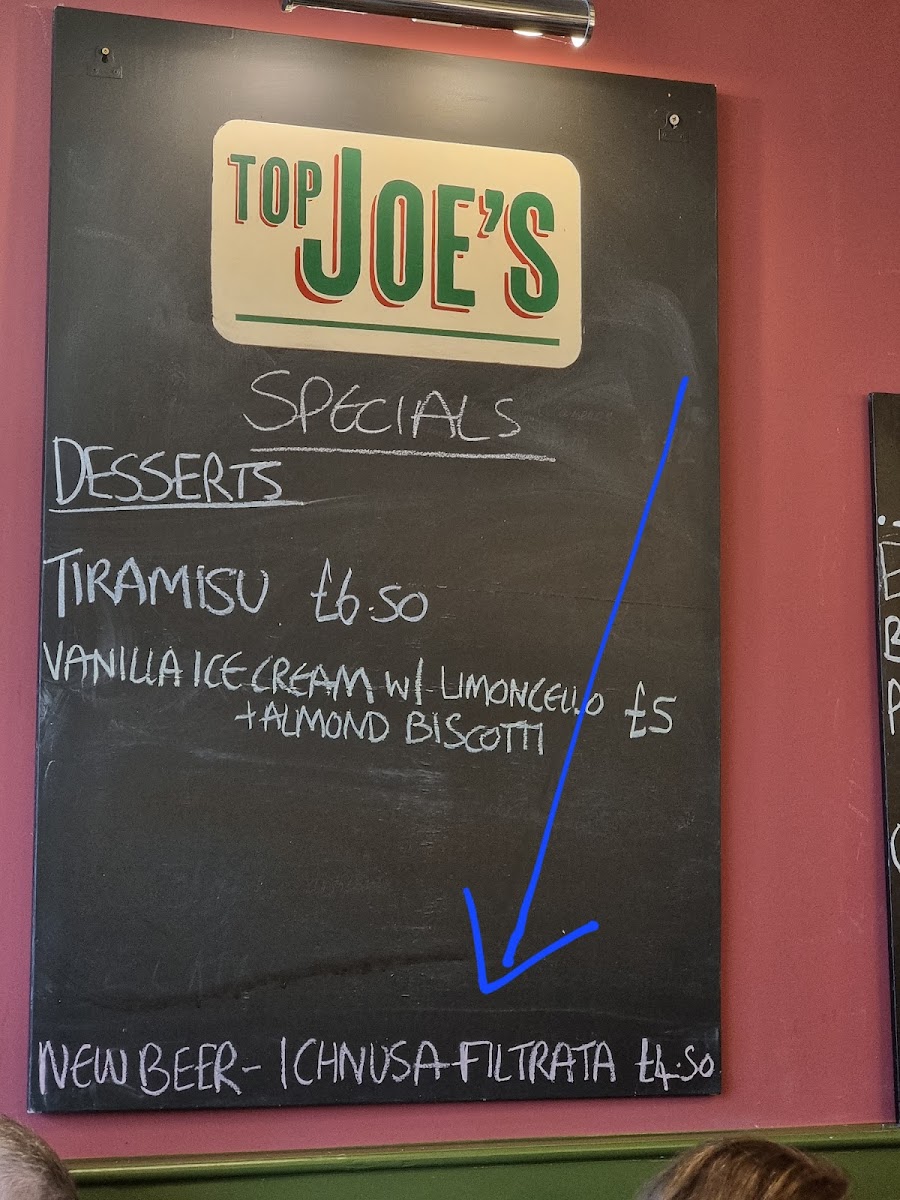 TOP JOE'S
SPECIALS
DESSERTS
TIRAMISU £6.50
VANILLA ICE CREAM W/ LIMONCELLO £5
+ALMOND BISCOTTI
NEW BEER- ICHNUSA FILTRATA £4.50